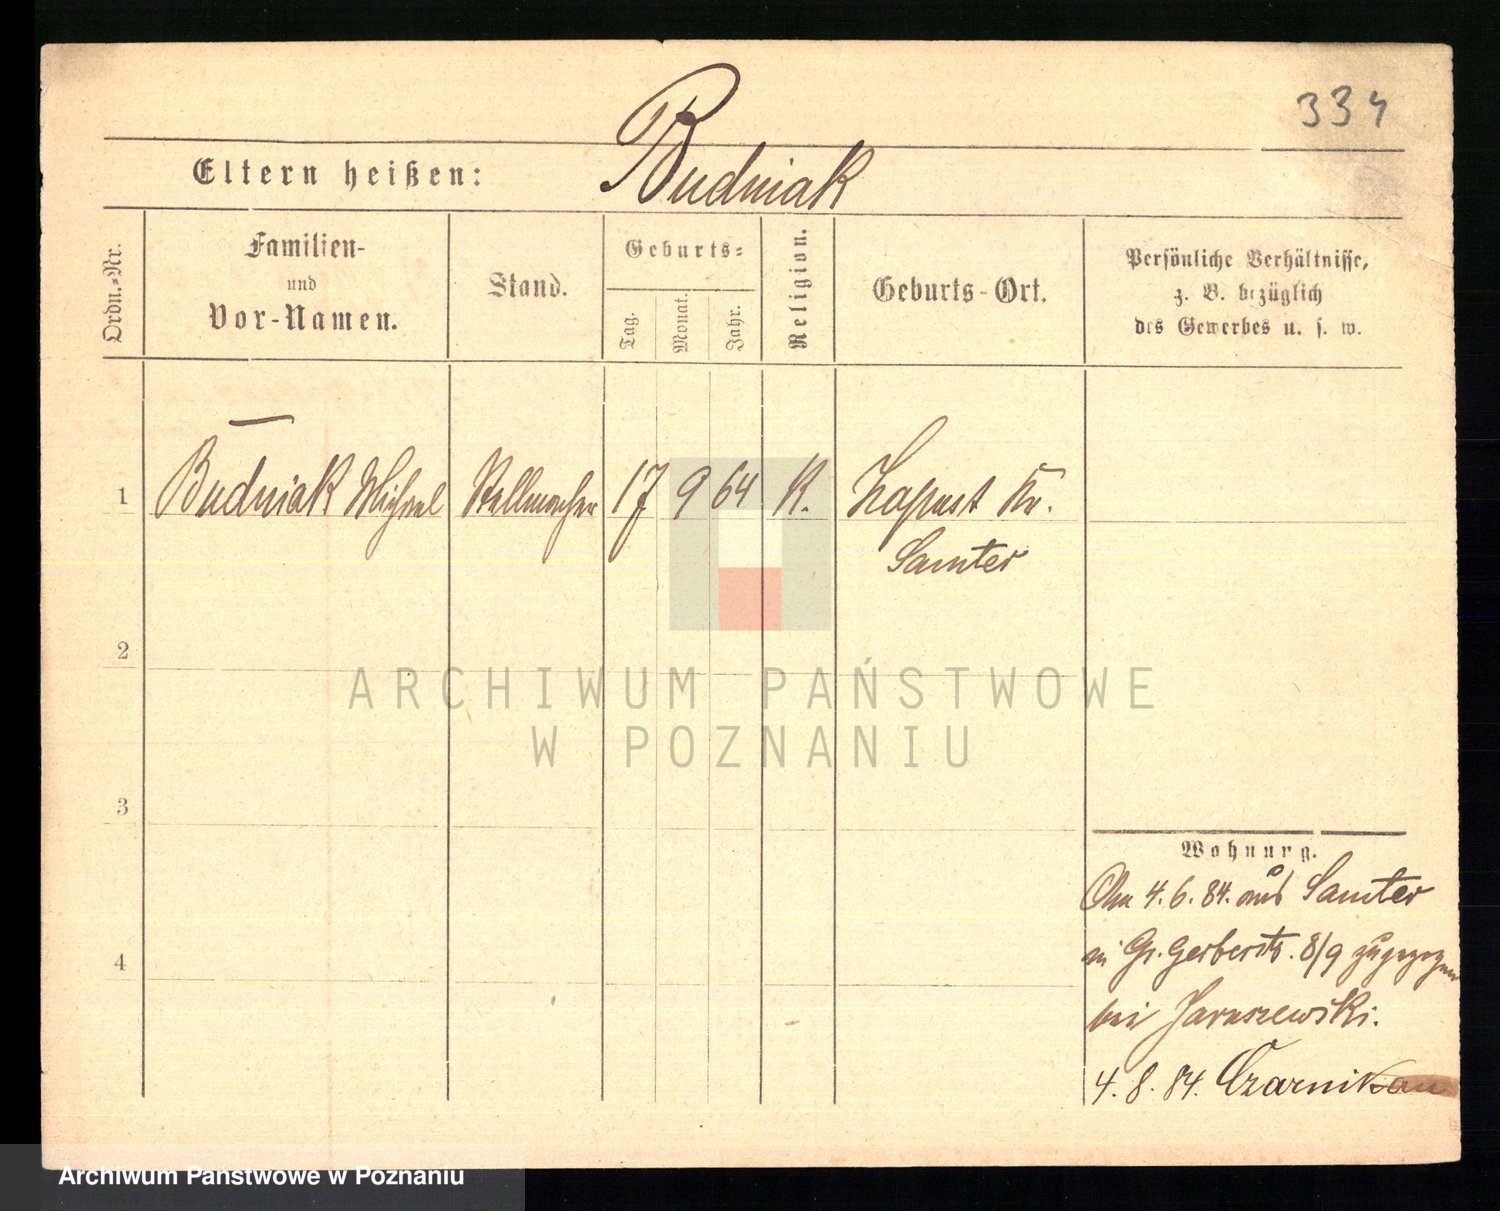 334
Budniak
Eltern heißen:
Ordn.-Nr.
Familien-
und
Vor-Namen.
Stand.
Geburts-
Tag.
Monat.
Jahr.
Religion.
Geburts-Ort.
Persönliche Verhältnisse,
z. B. bezüglich
des Gewerbes u. s. w.
1 Budniak Michael Stellmacher 17 9 64 K. Kr.
Samter
2
3
4
ARCHIWUM PAŃSTWOWE
W POZNANIU
Wohnung.
4.6.84. aus Samter
in Gr. Gerberstr. 8/9 zugezogen
bei Jaruszewski.
4.8.84. Czarnikau
Archiwum Państwowe w Poznaniu